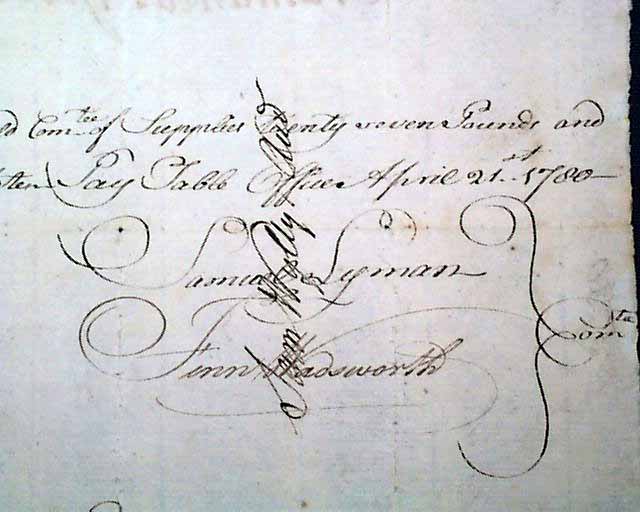 ed Com^tee of Supplies Twenty seven Pounds and
Pay Table Office April 21.st 1780
Samuel Lyman
Fenn Wadsworth
Com^tee
Sam Wyllys